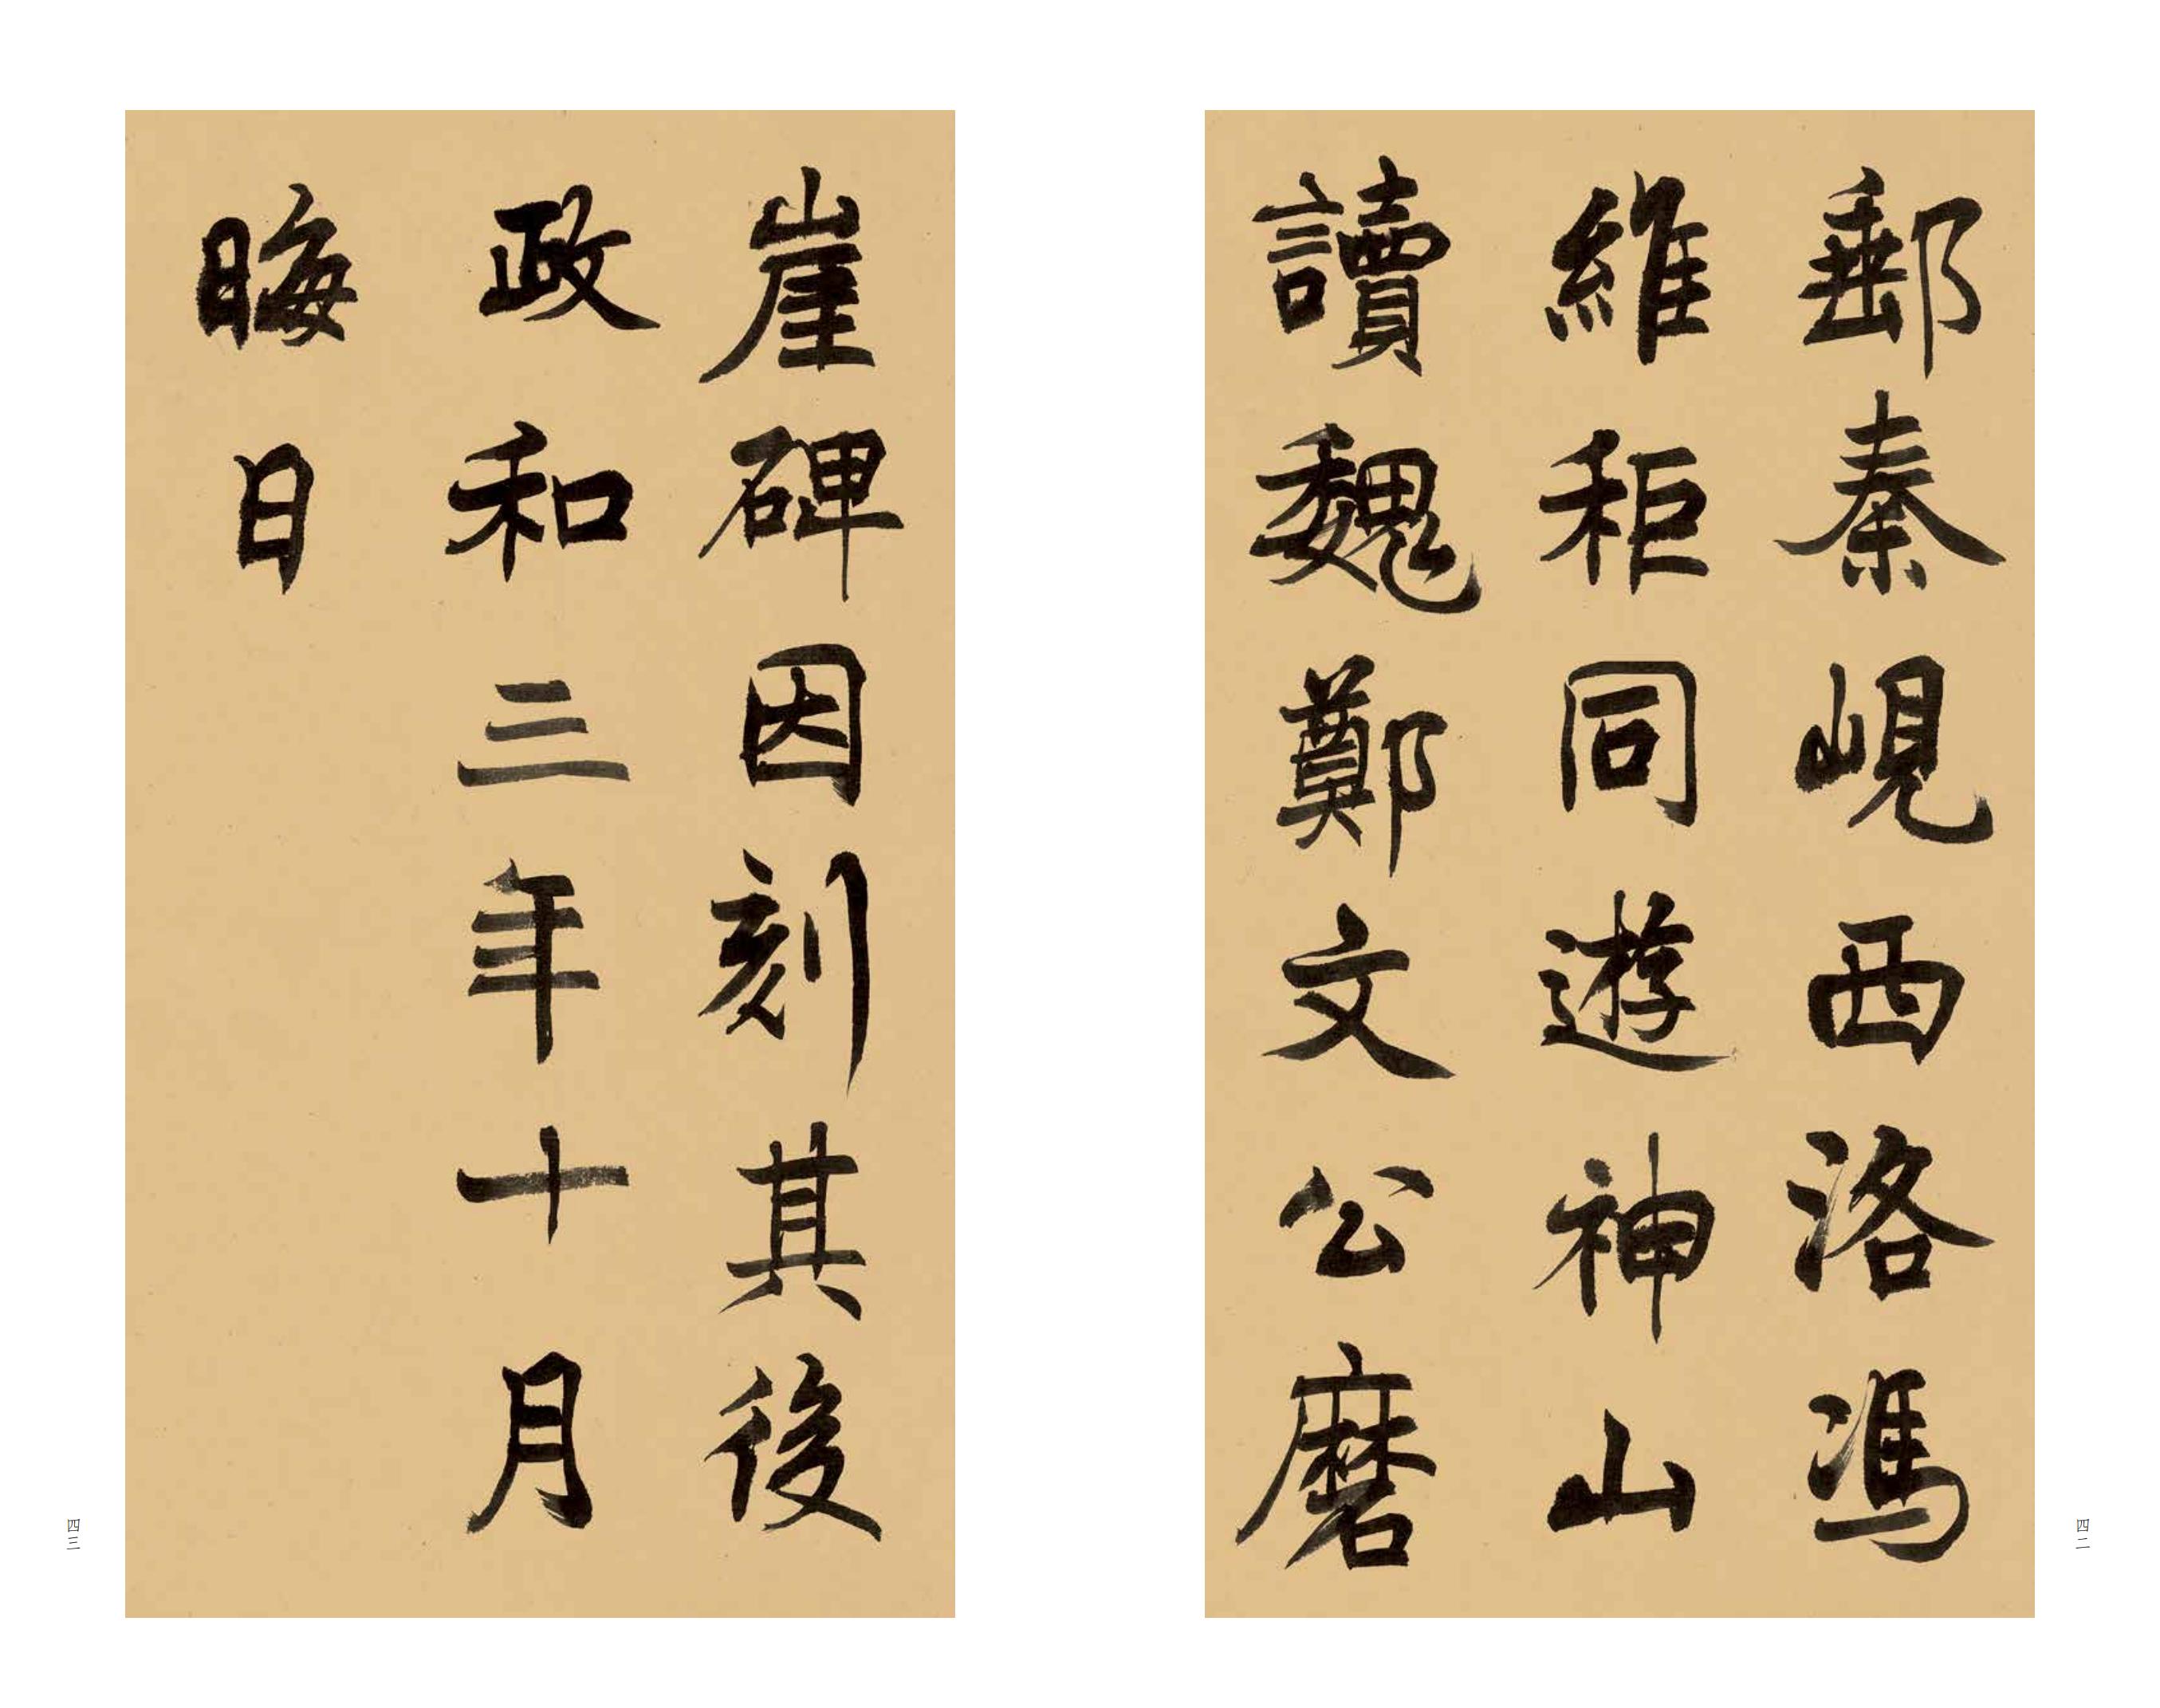 郵秦峴西洛馮
維秬同遊神山
讀魏鄭文公磨
四二
崖碑因刻其後
政和三年十月
晦日
四三